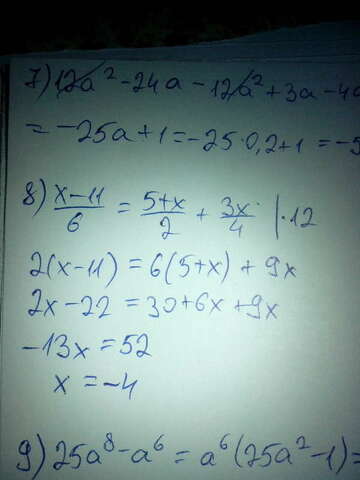 7) 12a² - 24a - 12a² + 3a - 4a
= -25a + 1 = -25 · 0,2 + 1 = -5
8) (x - 11)/6 = (5 + x)/2 + 3x/4 | · 12
2(x - 11) = 6(5 + x) + 9x
2x - 22 = 30 + 6x + 9x
-13x = 52
x = -4
9) 25a⁸ - a⁶ = a⁶(25a² - 1) =